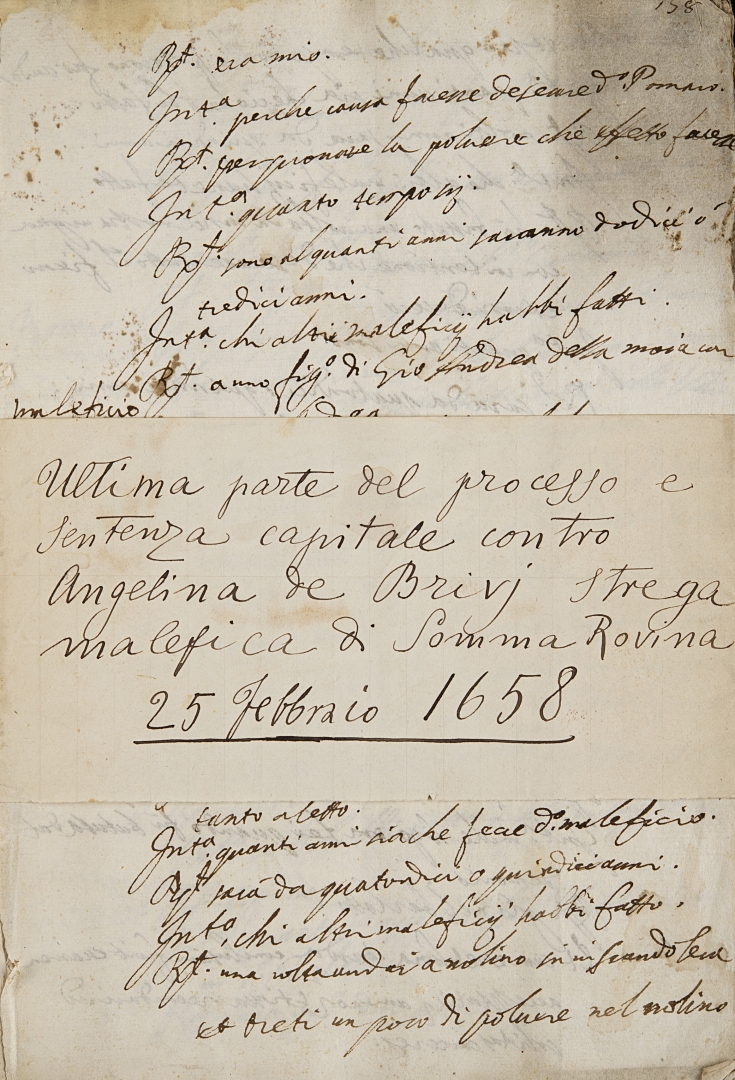 158
Rt. era mio.
Int.a perche causa facesse desecare d.o Pomaro.
Rt. per provare la polvere che effetto faceva
Int.a quanto tempo sij.
Rt. sono alquanti anni saranno dodici ò
tredici anni.
Int.a chi altri maleficij habbi fatti.
Rt. a uno fig.o di Gio Andrea della moia con
maleficio
Ultima parte del processo e
sentenza capitale contro
Angelina de Brivj strega
malefica di Somma Rovina
25 Febbraio 1658
tanto a letto.
Int.a quanti anni sia che fece d.o maleficio.
Rt. sarà da quatordici o quindici anni.
Int.a, chi altri maleficij habbi fatto.
Rt. una volta andai a molino in
et treti un poco di polvere nel molino